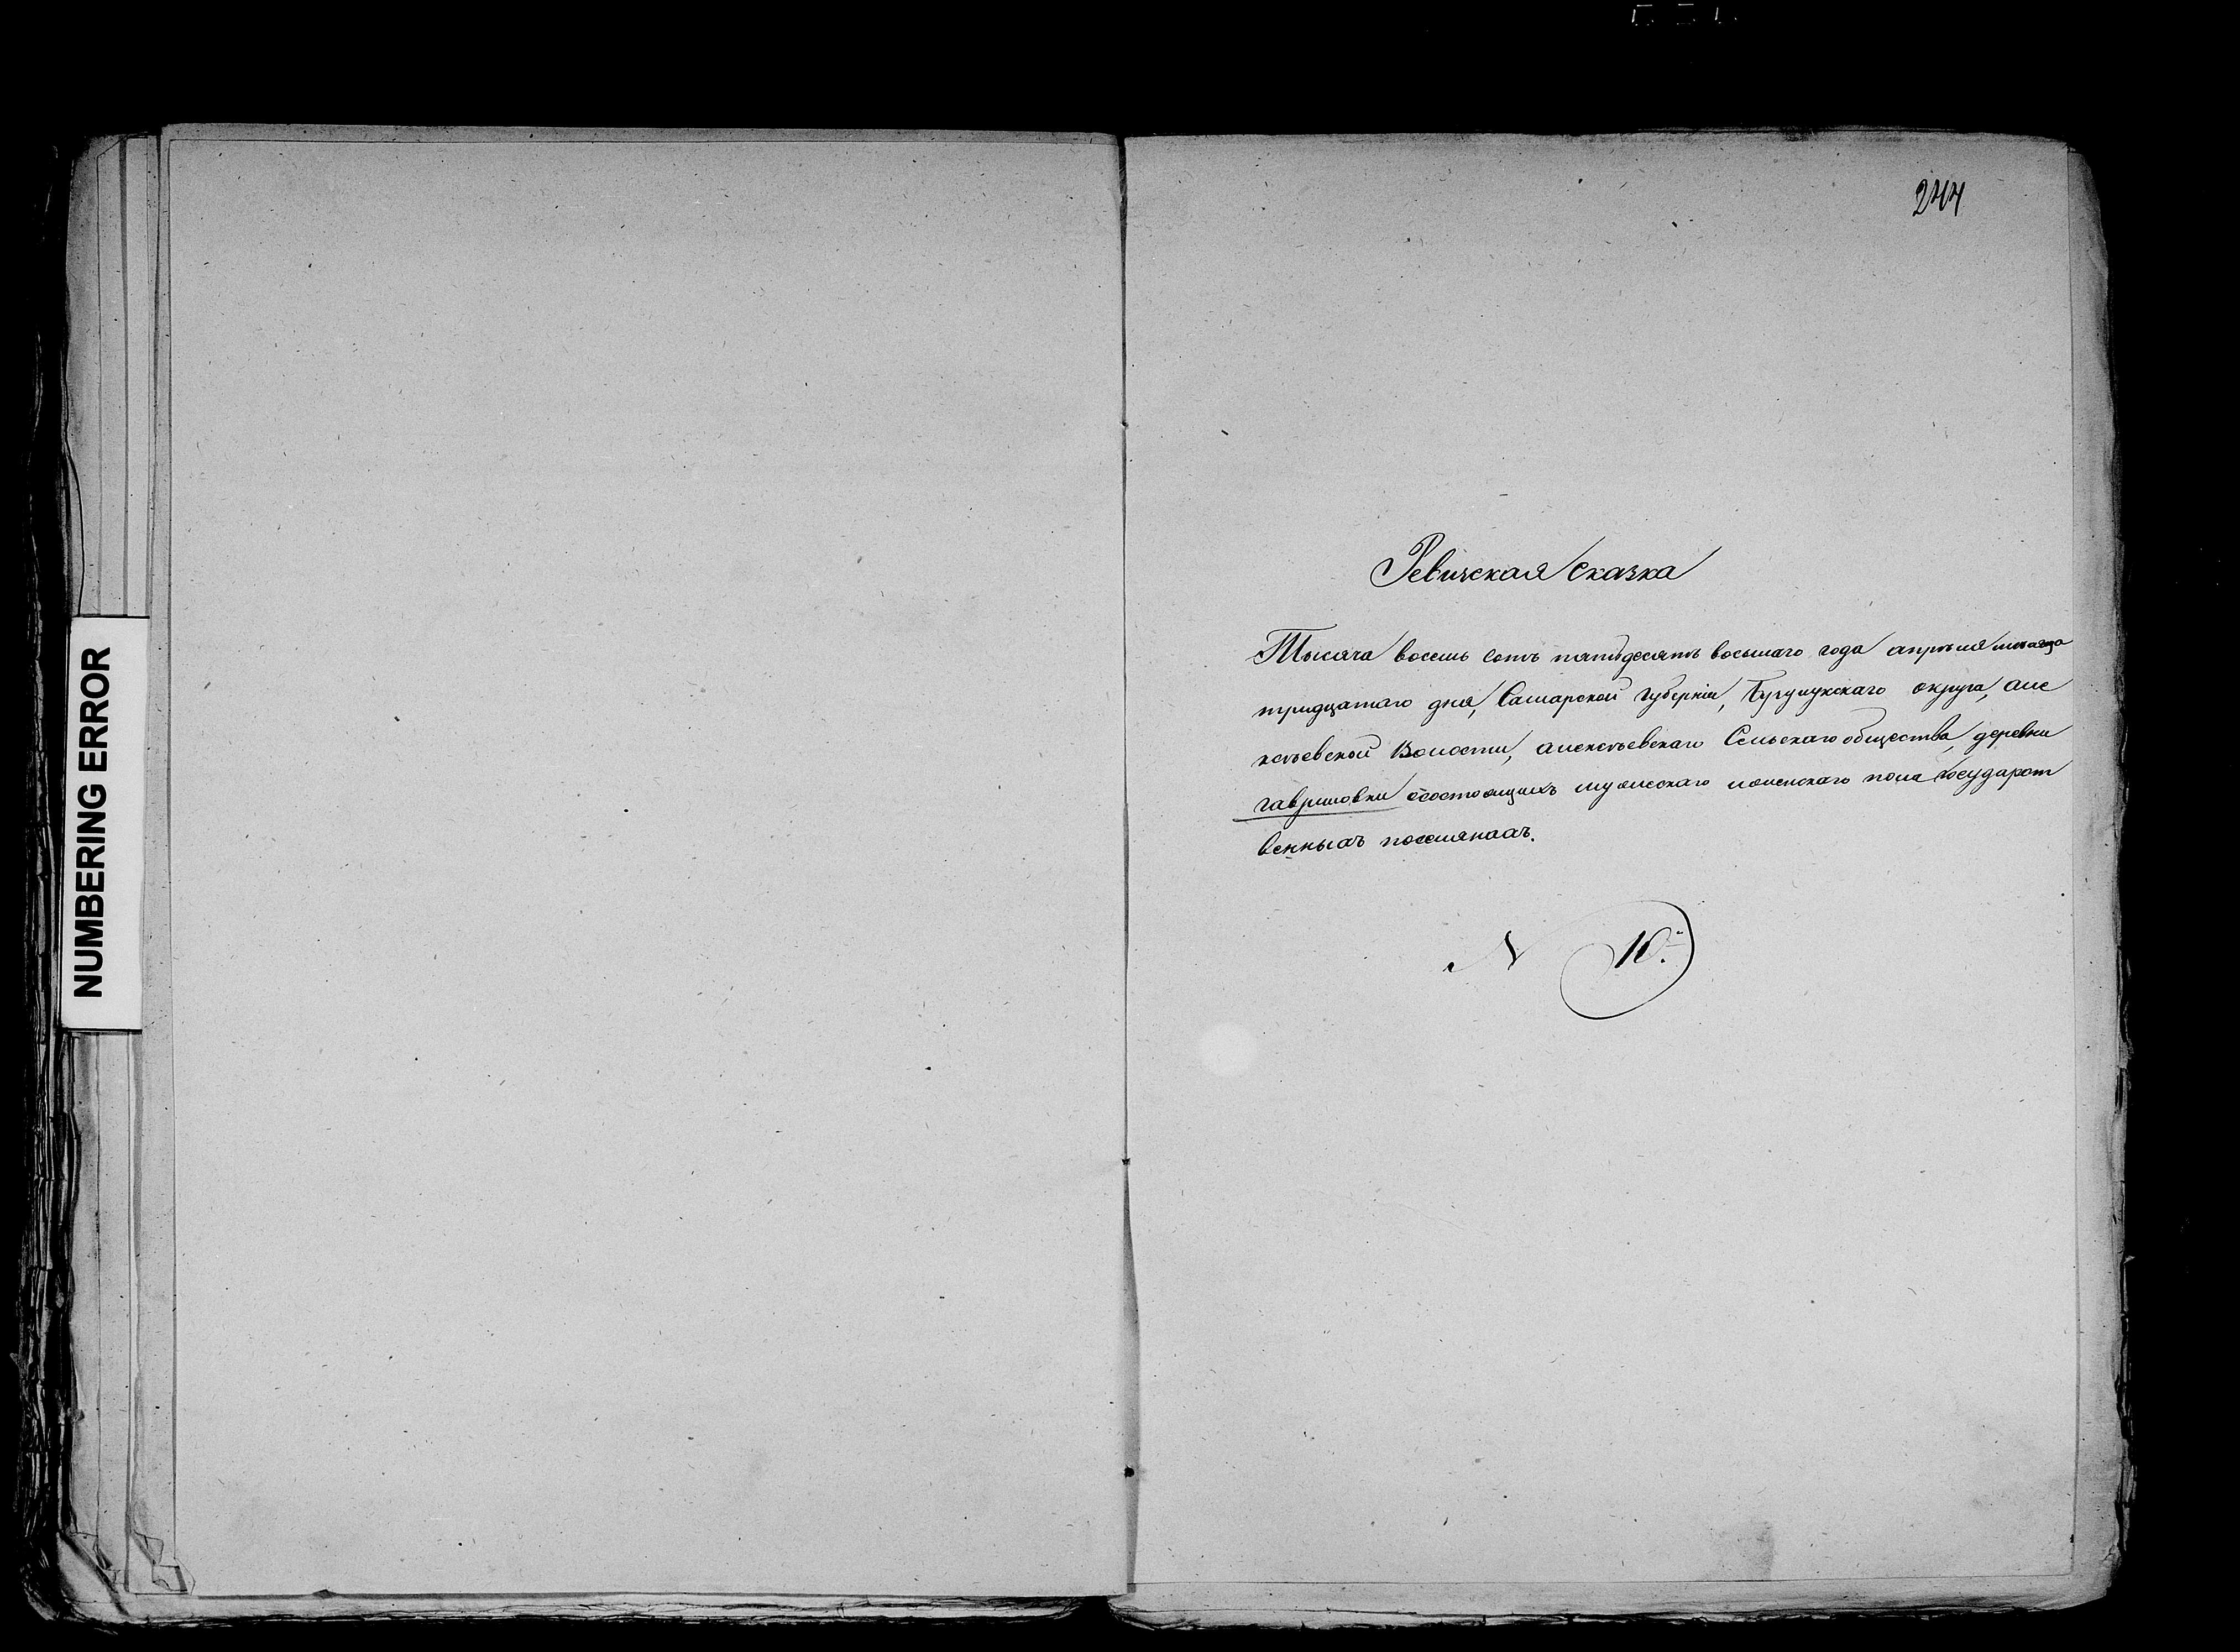 NUMBERING ERROR
244
Ревижская сказка
Тысяча восемь сотъ пятьдесятъ восьмаго года апрѣля месяца
тридцатаго дня, Самарской губерніи, Бугульмскаго округа, Але
ксѣевской Волости, алексѣевскаго Сельскаго общества, деревни
гавриловки состоящихъ мужескаго иженскаго пола государст
венныхъ поселянахъ.
N 10.й